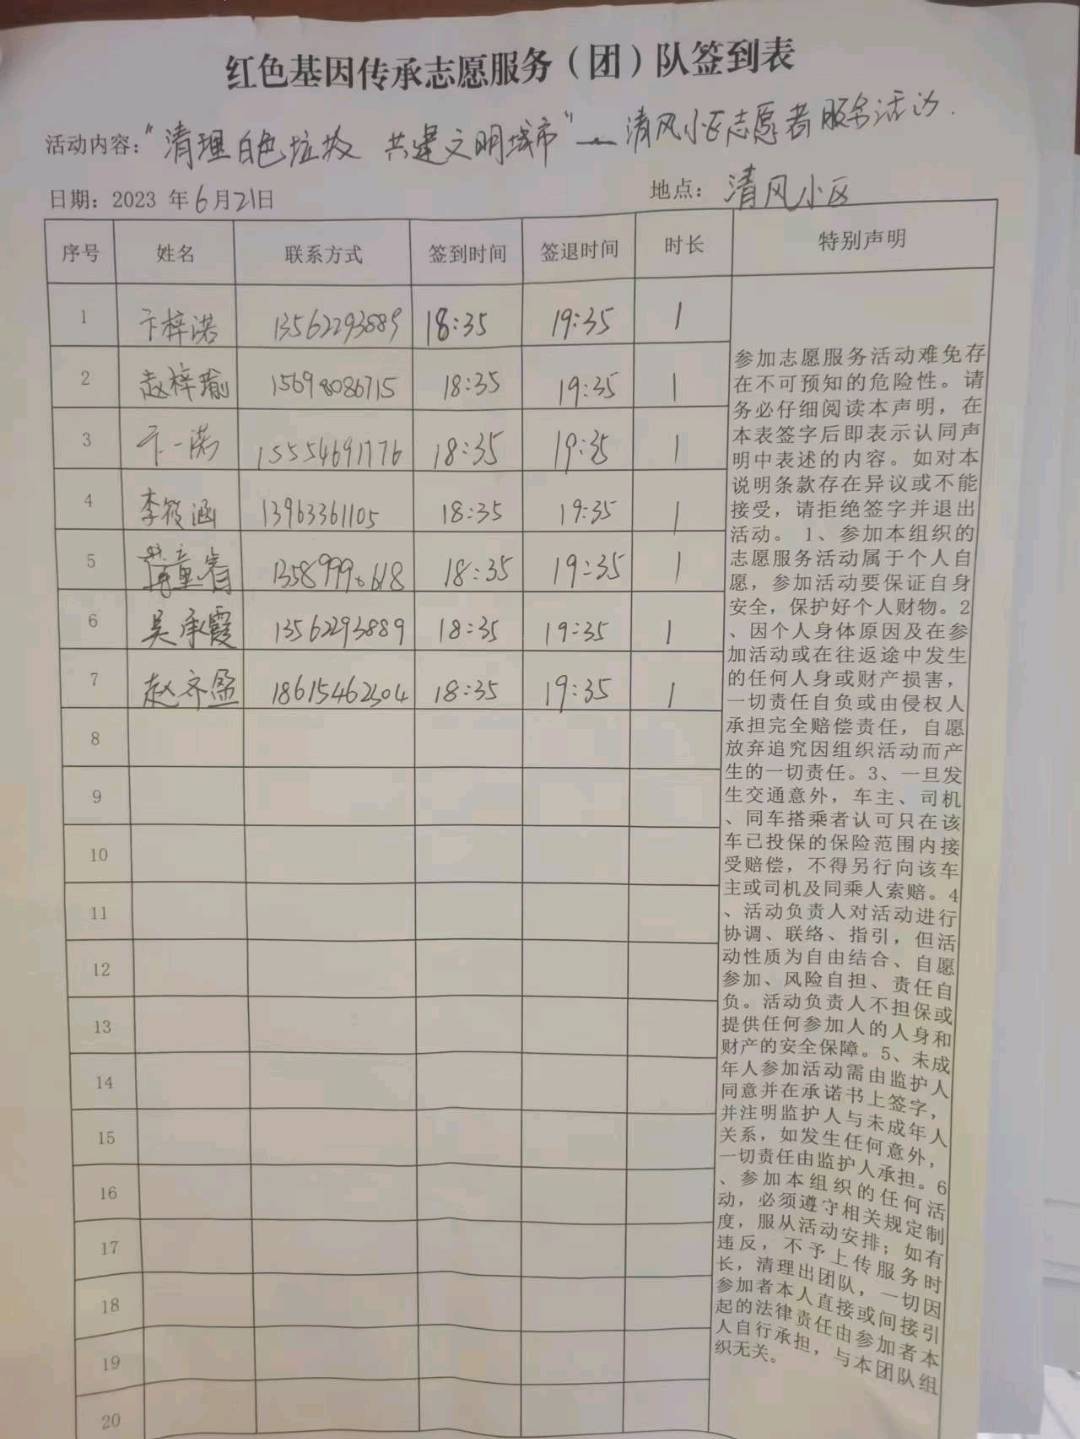 红色基因传承志愿服务（团）队签到表
活动内容：“清理白色垃圾 共建文明城市”—清风小区志愿者服务活动.
日期：2023 年6月21日 地点：清风小区
序号 姓名 联系方式 签到时间 签退时间 时长 特别声明
1 卞梓诺 13562293889 18:35 19:35 1
2 赵梓瑜 15698086715 18:35 19:35 1
3 卞一诺 15554691776 18:35 19:35 1
4 李筱涵 13963361105 18:35 19:35 1
5 18:35 19:35 1
6 吴承霞 13562293889 18:35 19:35 1
7 赵齐盈 18615462304 18:35 19:35 1
8
9
10
11
12
13
14
15
16
17
18
19
20
参加志愿服务活动难免存
在不可预知的危险性。请
务必仔细阅读本声明，在
本表签字后即表示认同声
明中表述的内容。如对本
说明条款存在异议或不能
接受，请拒绝签字并退出
活动。1、参加本组织的
志愿服务活动属于个人自
愿，参加活动要保证自身
安全，保护好个人财物。2
、因个人身体原因及在参
加活动或在往返途中发生
的任何人身或财产损害，
一切责任自负或由侵权人
承担完全赔偿责任，自愿
放弃追究因组织活动而产
生的一切责任。3、一旦发
生交通意外，车主、司机
、同车搭乘者认可只在该
车已投保的保险范围内接
受赔偿，不得另行向该车
主或司机及同乘人索赔。4
、活动负责人对活动进行
协调、联络、指引，但活
动性质为自由结合、自愿
参加、风险自担、责任自
负。活动负责人不担保或
提供任何参加人的人身和
财产的安全保障。5、未成
年人参加活动需由监护人
同意并在承诺书上签字，
并注明监护人与未成年人
关系，如发生任何意外，
一切责任由监护人承担。6
、参加本组织的任何活
动，必须遵守相关规定制
度，服从活动安排；如有
违反，不予上传服务时
长，清理出团队，一切因
参加者本人直接或间接引
起的法律责任由参加者本
人自行承担，与本团队组
织无关。